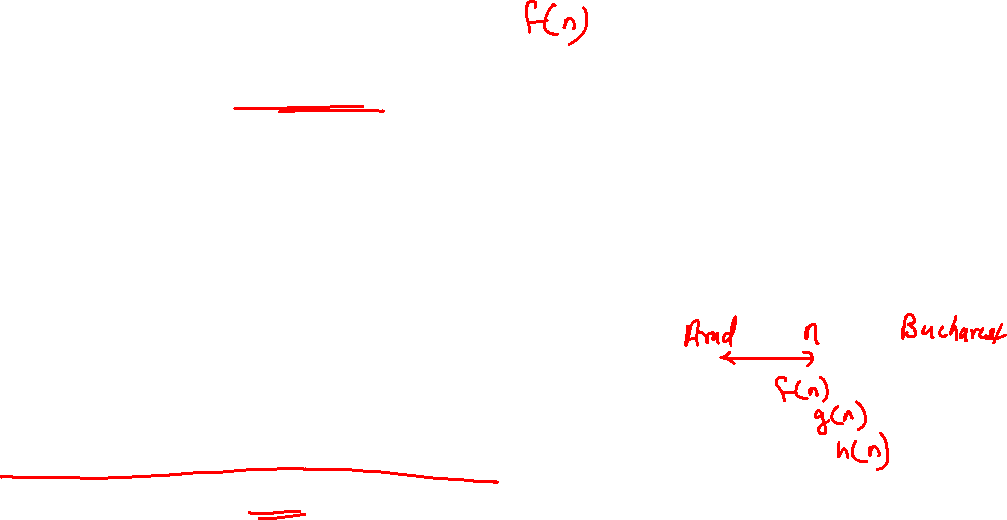 f(n)
Arad n Bucharest
f(n)
g(n)
h(n)